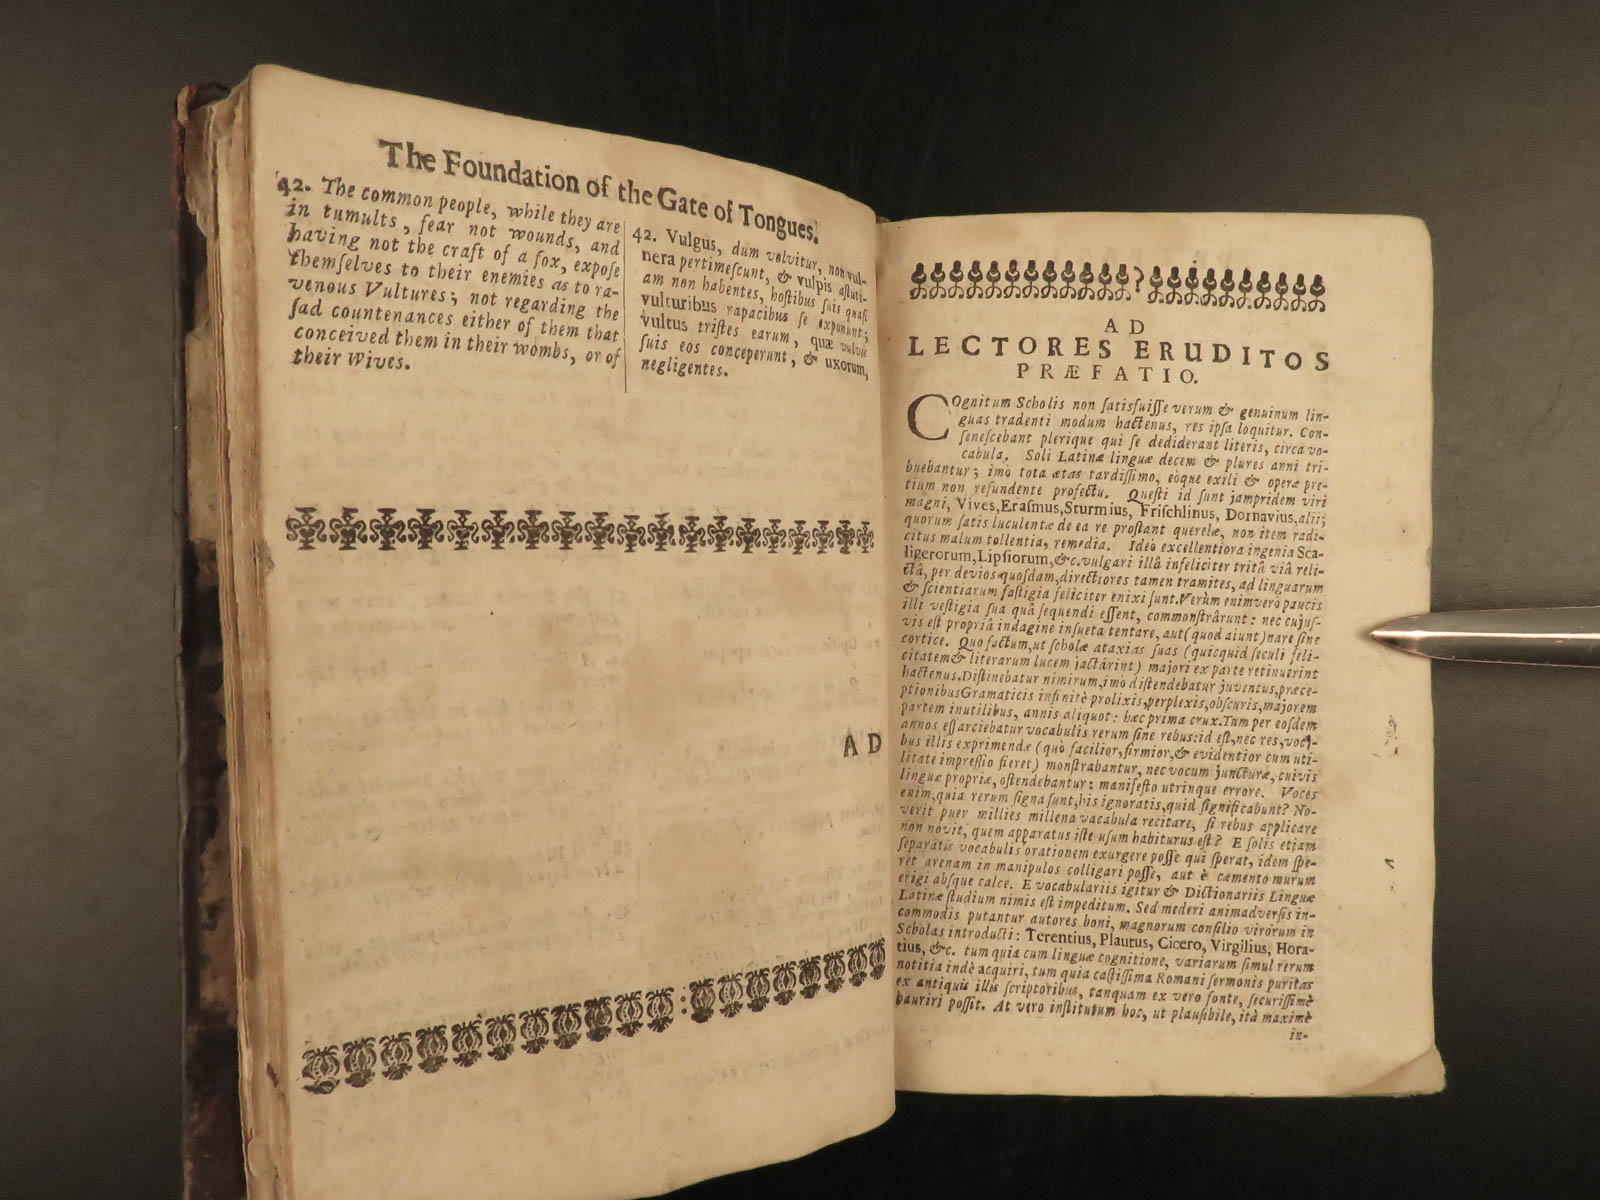 The Foundation of the Gate of Tongues.
42. The common people, while they are
in tumults, fear not wounds, and
having not the craft of a fox, expoſe
themſelves to their enemies as to ra-
venous Vultures; not regarding the
ſad countenances either of them that
conceived them in their wombs, or of
their Wives.
42. Vulgus, dum volvitur, non vul-
nera pertimeſcunt, & vulpis aſtuti-
am non habentes, hoſtibus ſuis quaſi
vulturibus rapacibus ſe exponunt;
vultus triſtes earum, quæ vulvis
ſuis eos conceperunt, & uxorum,
negligentes.
AD
AD
LECTORES ERUDITOS
PRÆFATIO.
COgnitum Scholis non ſatisfuiſſe verum & genuinum lin-
guas tradenti modum hactenus, res ipſa loquitur. Con-
ſeneſcebant plerique qui ſe dediderant literis, circa vo-
cabula. Soli Latinæ linguæ decem & plures anni tri-
buebantur; imò tota ætas tardiſſimo, eòque exili & operæ pre-
tium non refundente profectu. Queſti id ſunt jampridem viri
magni, Vives, Eraſmus, Sturmius, Friſchlinus, Dornavius, alii;
quorum ſatis luculentæ de ea re proſtant querelæ, non item radi-
citus malum tollentia, remedia. Ideò excellentiora ingenia Sca-
ligerorum, Lipſiorum, &c. vulgari illâ infeliciter tritâ viâ reli-
ctâ, per devios quoſdam, directiores tamen tramites, ad linguarum
& ſcientiarum faſtigia feliciter enixi ſunt. Verùm enimverò paucis
illi veſtigia ſua quâ ſequendi eſſent, commonſtrârunt: nec cujuſ-
vis eſt propriâ indagine inſueta tentare, aut (quod aiunt) nare ſine
cortice. Quo factum, ut ſcholæ ataxias ſuas (quicquid ſeculi feli-
citatem & literarum lucem jactârint) majori ex parte retinuerint
hactenus. Diſtinebatur nimirum, imò diſtendebatur juventus, præce-
ptionibus Gramaticis infinitè prolixis, perplexis, obſcuris, majorem
partem inutilibus, annis aliquot: hæc prima crux. Tum per eoſdem
annos eſſarciebatur vocabulis rerum ſine rebus: id eſt, nec res, voci-
bus illis exprimendæ (quò facilior, firmior, & evidentior cum uti-
litate impreſſio fieret) monſtrabantur, nec vocum juncturæ, cuivis
linguæ propriæ, oſtendebantur: manifeſto utrinque errore. Voces
enim, quia rerum ſigna ſunt, his ignoratis, quid ſignificabunt? No-
verit puer millies millena vacabula recitare, ſi rebus applicare
non novit, quem apparatus iſte uſum habiturus eſt? E ſolis etiam
ſeparatis vocabulis orationem exurgere poſſe qui ſperat, idem ſpe-
ret arenam in manipulos colligari poſſe, aut è cæmento murum
erigi abſque calce. E vocabulariis igitur & Dictionariis Linguæ
Latinæ ſtudium nimis eſt impeditum. Sed mederi animadverſis in-
commodis putantur autores boni, magnorum conſilio virorum in
Scholas introducti: Terentius, Plautus, Cicero, Virgilius, Hora-
tius, &c. tum quia cum linguæ cognitione, variarum ſimul rerum
notitia indè acquiri, tum quia caſtiſſima Romani ſermonis puritas
ex antiquis illis ſcriptoribus, tanquam ex vero fonte, ſecuriſſimè
hauriri poſſit. At vero inſtitutum hoc, ut plauſibile, ità maximè
in-